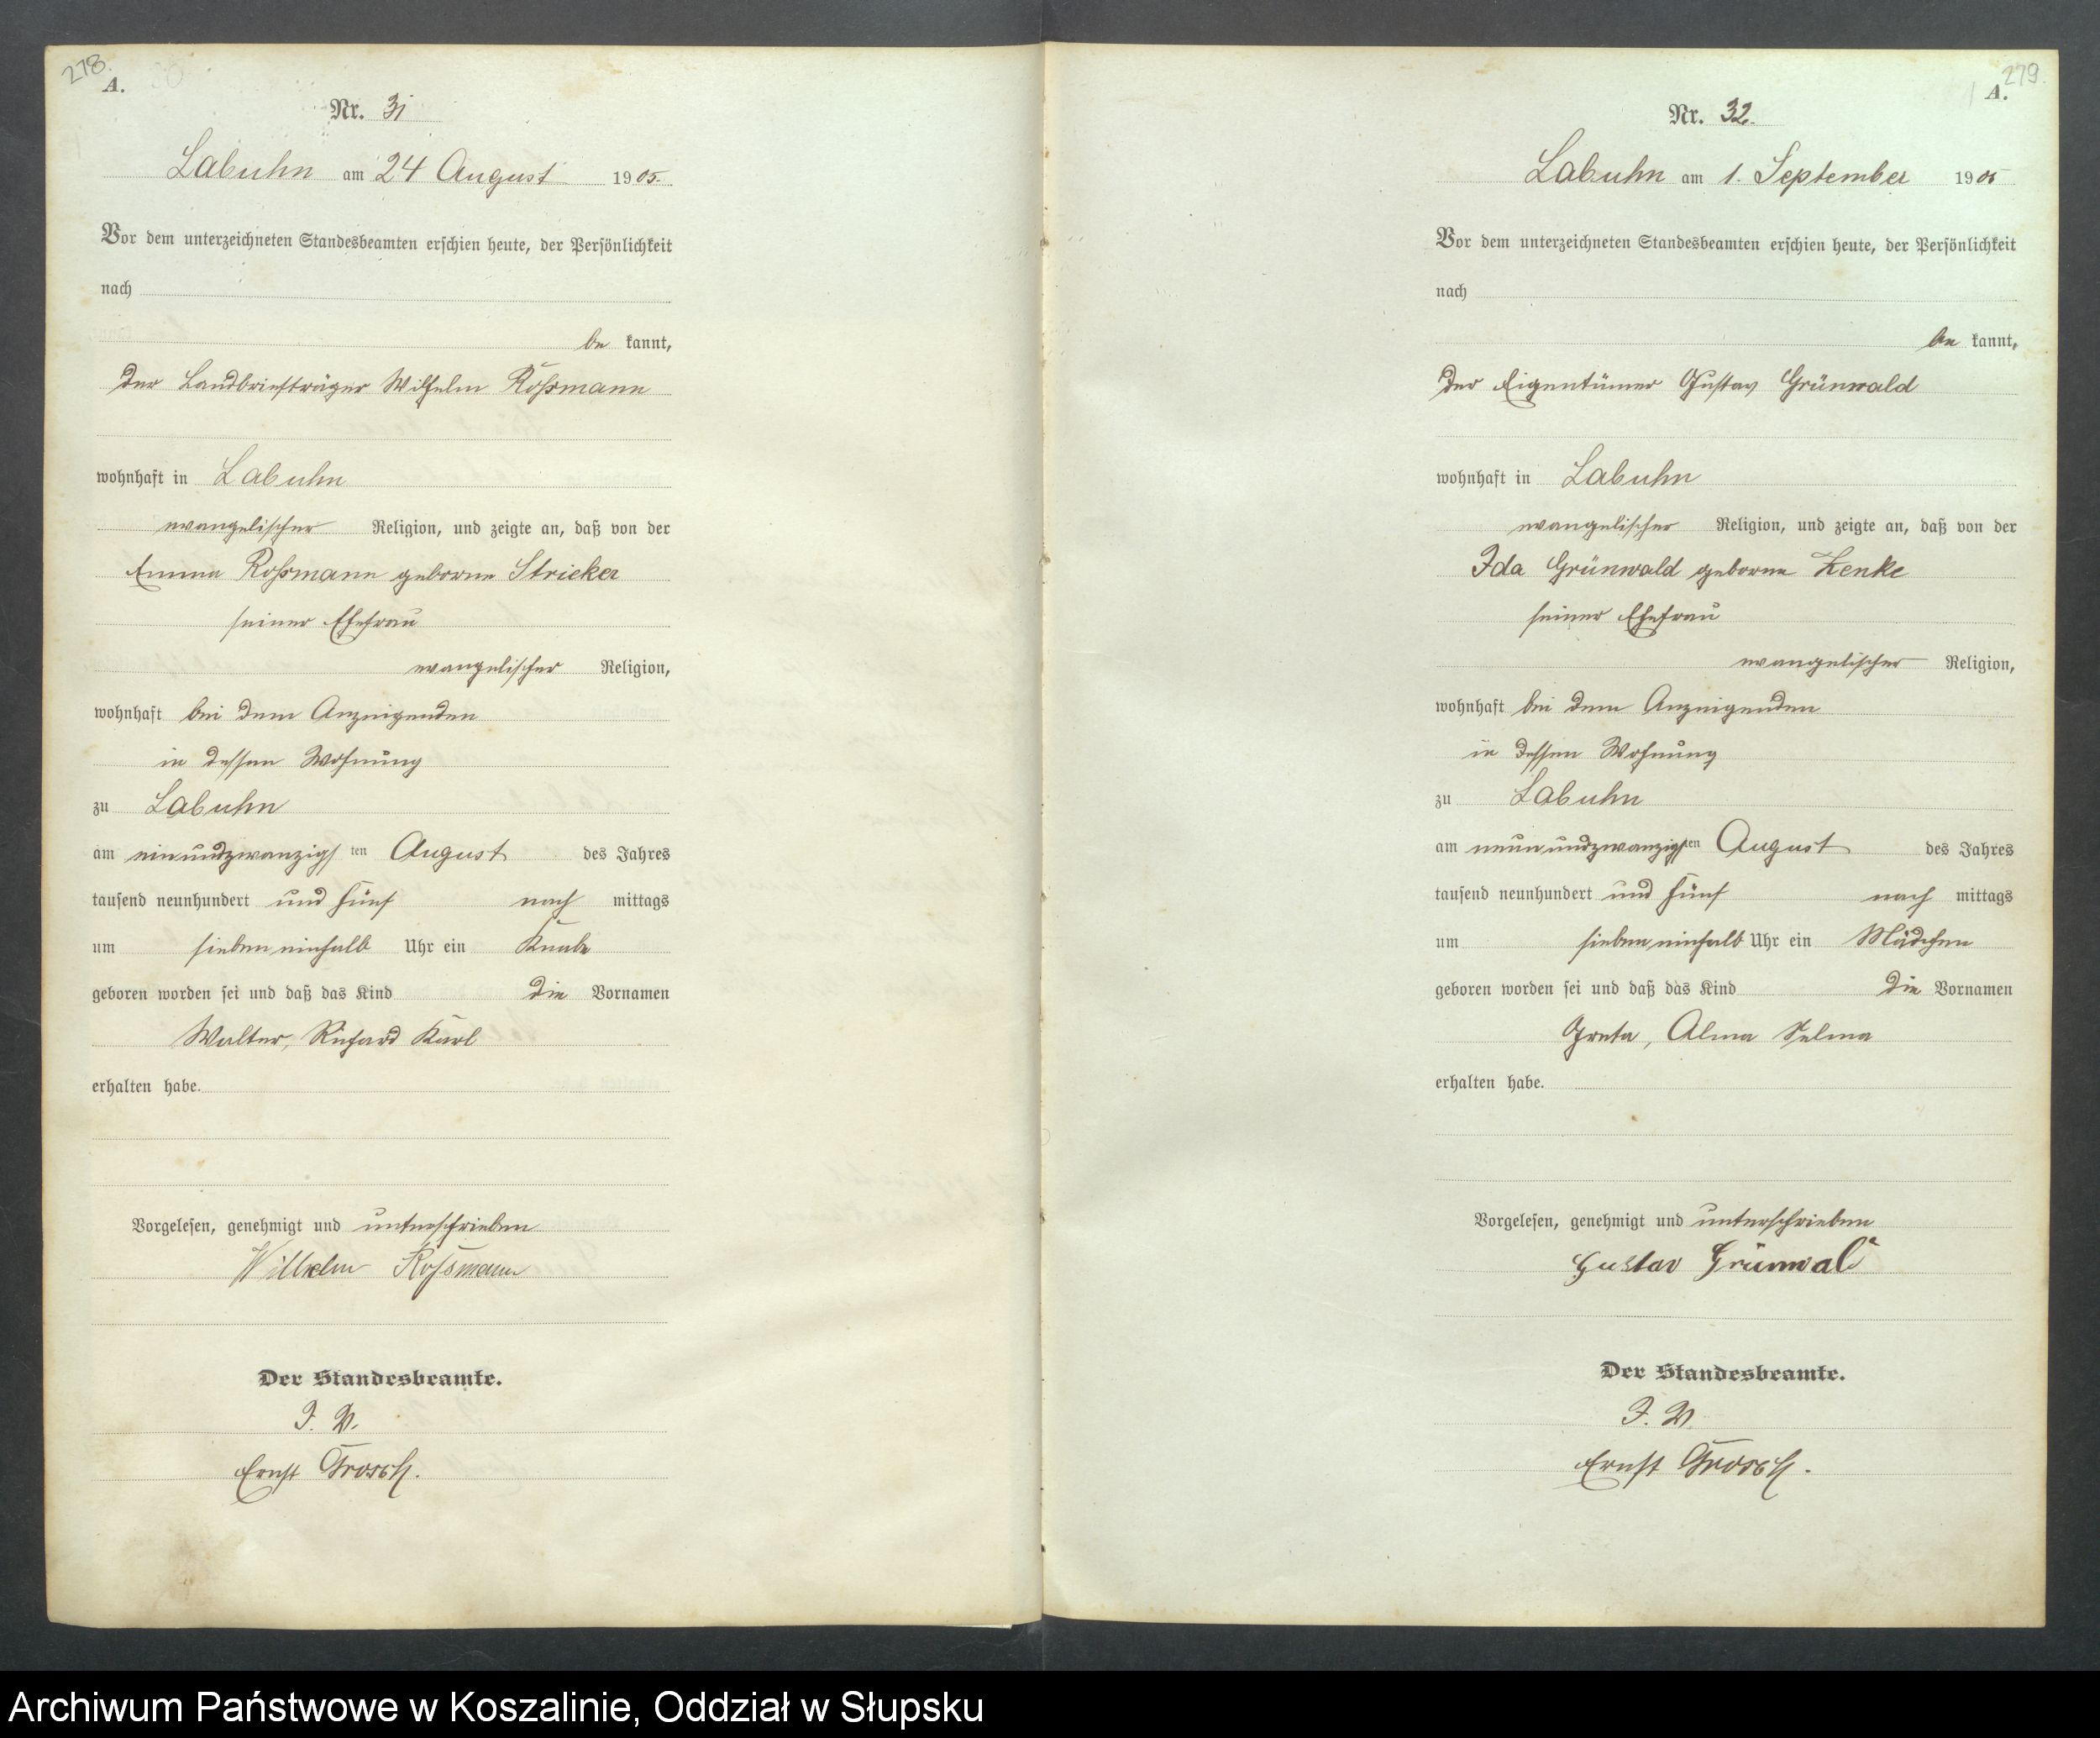 278.
A.
Nr. 31
Labuhn am 24 August 1905.
Vor dem unterzeichneten Standesbeamten erschien heute, der Persönlichkeit
nach
be kannt,
der Landbriefträger Wilhelm Roßmann
wohnhaft in Labuhn
evangelischer Religion, und zeigte an, daß von der
Emma Roßmann geborene Stricker
seiner Ehefrau
evangelischer Religion,
wohnhaft bei dem Anzeigenden
in dessen Wohnung
zu Labuhn
am einundzwanzigsten August des Jahres
tausend neunhundert und fünf nach mittags
um siebeneinhalb Uhr ein Knabe
geboren worden sei und daß das Kind die Vornamen
Walter, Richard Karl
erhalten habe.
Vorgelesen, genehmigt und unterschrieben
Wilhelm Roßmann
Der Standesbeamte.
J. V.
Ernst Grosch.
279.
A.
Nr. 32.
Labuhn am 1. September 1905
Vor dem unterzeichneten Standesbeamten erschien heute, der Persönlichkeit
nach
be kannt,
der Eigentümer Gustav Grünwald
wohnhaft in Labuhn
evangelischer Religion, und zeigte an, daß von der
Ida Grünwald geborene Zenke
seiner Ehefrau
evangelischer Religion,
wohnhaft bei dem Anzeigenden
in dessen Wohnung
zu Labuhn
am neunundzwanzigsten August des Jahres
tausend neunhundert und fünf nach mittags
um siebeneinhalb Uhr ein Mädchen
geboren worden sei und daß das Kind die Vornamen
Greta, Alma Selma
erhalten habe.
Vorgelesen, genehmigt und unterschrieben
Gustav Grünwald
Der Standesbeamte.
J. V.
Ernst Grosch.
Archiwum Państwowe w Koszalinie, Oddział w Słupsku